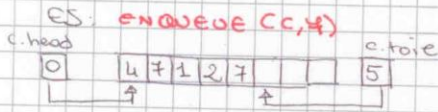 ES: ENQUEUE (C,4)
c.head c.taile
0 4 7 1 2 7 5